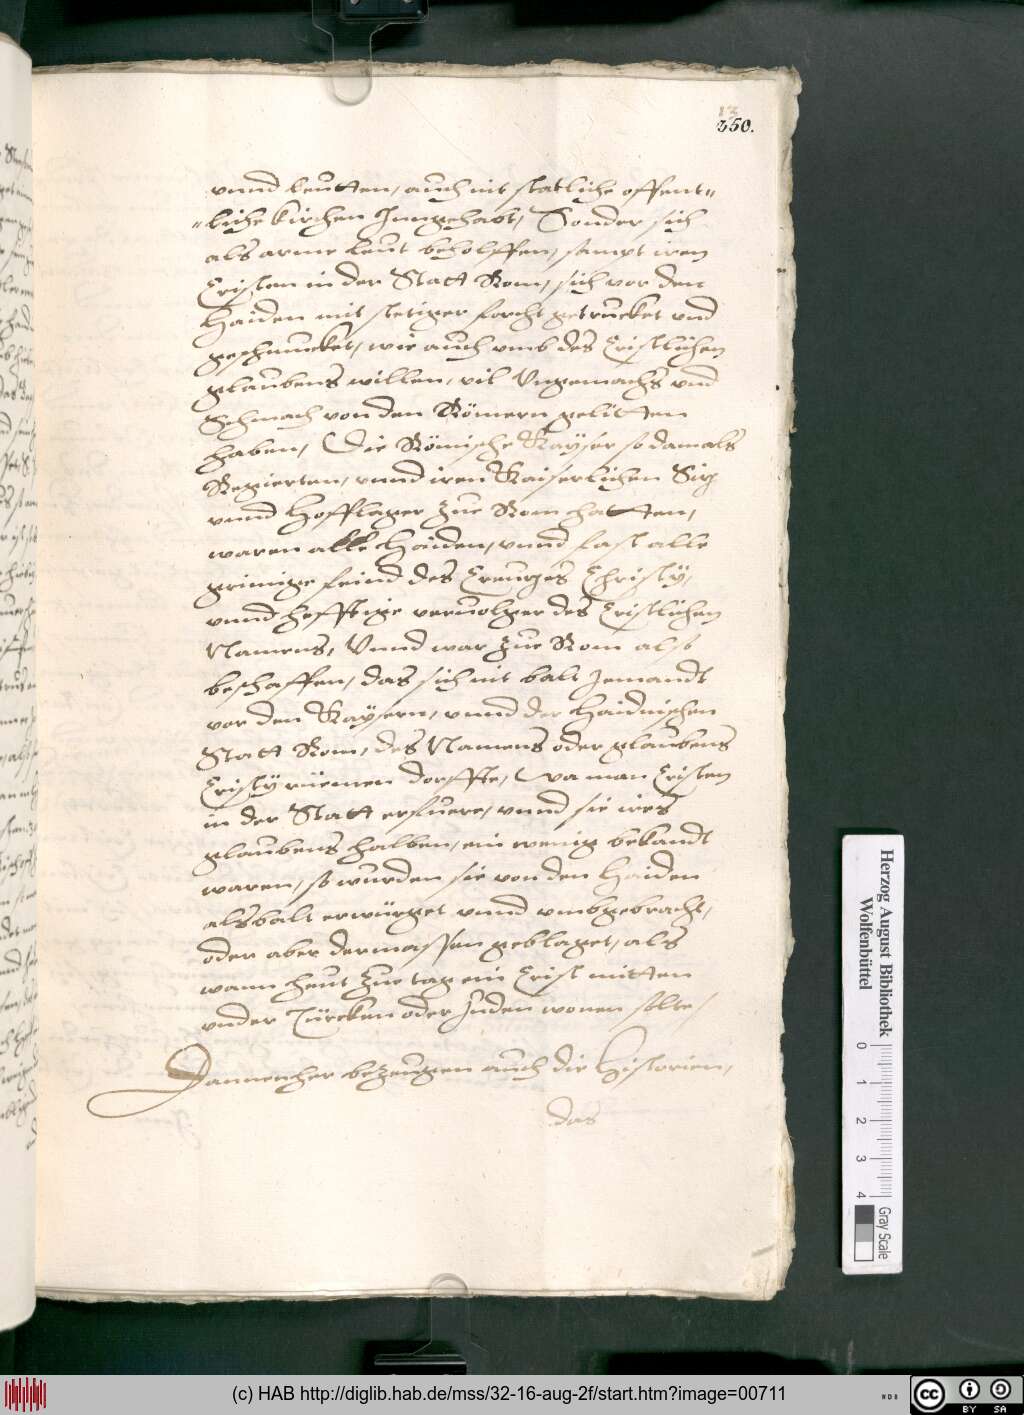 13
350.
vnnd leutten, auch nit statliche offent=
=liche kirchen Inngehabt, Sonder sich
als arme leut beholffen, sampt iren
Cristen in der Statt Rom, sich vor den
Haiden mit stetiger forcht getrucket vnd
geschmucket, wie auch vmb des Cristlichen
glaubens willen, vil Vngemachs vnd
schmach von den Römern gelitten
haben, Die Römische Kayser so damals
Regierten, vnnd iren Kaiserlichen Sitz
vnnd Hofflager zue Rom hatten,
waren alle Haiden, vnnd fast alle
grimige feind des Creutzes Christy,
vnnd hefftige veruolger des Cristlichen
Namens, Vnnd war zue Rom also
beschaffen, das sich nit balt Jemandt
vor den Kaysern, vnnd der Haidnischen
Statt Rom, des Namens oder glaubens
Cristy rüemen dorffte, Wa man Cristen
in der Statt erfuere, vnnd sie ires
glaubens halben, ein wenig bekandt
waren, so wurden sie von den Haiden
alsbalt erwürget vnnd vmbgebracht,
oder aber dermassen geblaget, als
wann heut zue tag ein Crist mitten
vnder Türcken oder Juden wonen solte,
Dannenher bezeugen auch die Historien,
das
Herzog August Bibliothek
Wolfenbüttel
0 1 2 3 4
Gray Scale
(c) HAB http://diglib.hab.de/mss/32-16-aug-2f/start.htm?image=00711
WDB
cc
BY SA